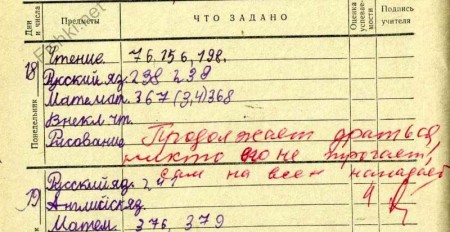 Дни и числа Предметы ЧТО ЗАДАНО Оценка успевае-мости Подпись учителя
Понедельник
18 Чтение. 76. 156, 198.
Русский яз. 298 239
Математ. 367 (3,4) 368
Внекл. чт.
Рисование Продолжает драться
никто его не трогает,
сам на всех нападает
19 Русский яз. 241
Английск. яз. 4
Матем. 376, 379
Fishki.net